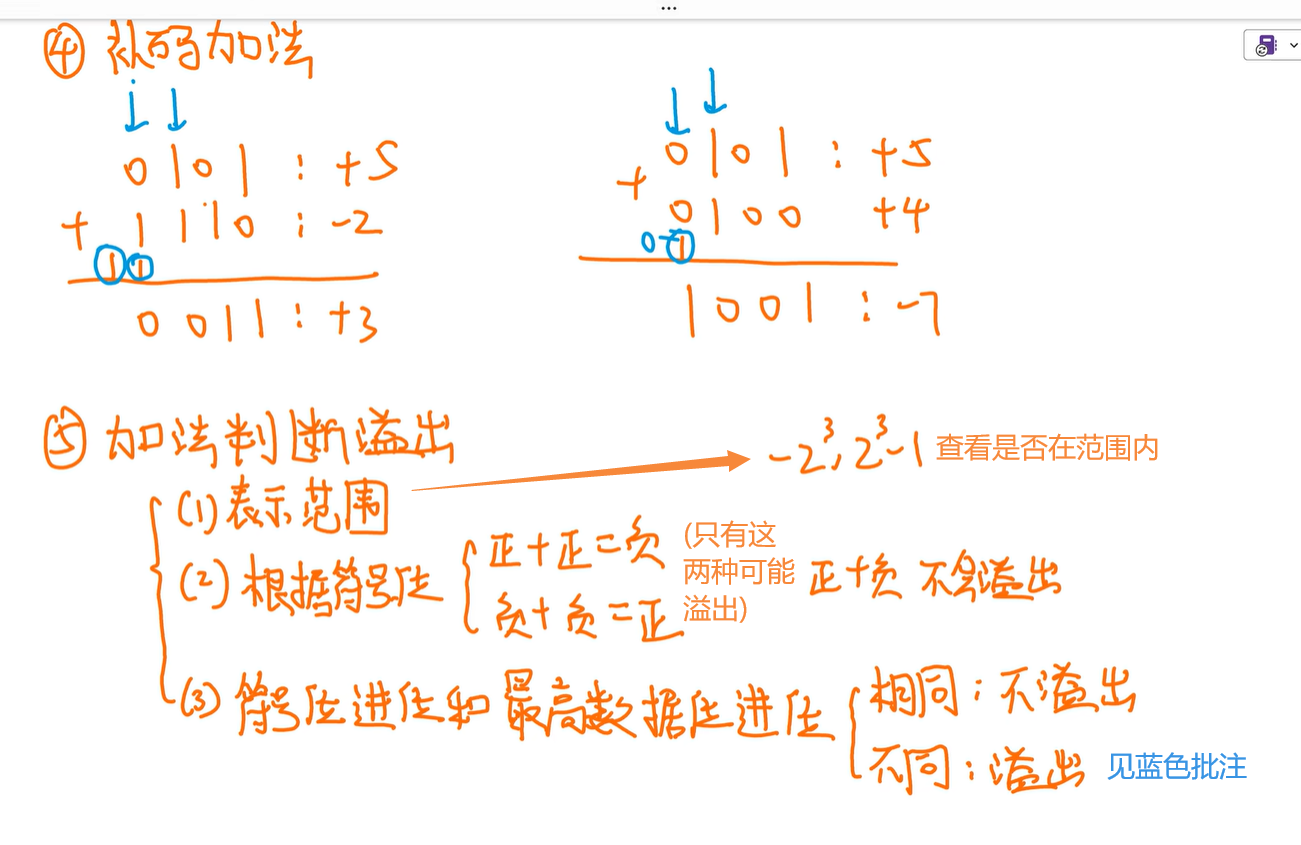 ④ 补码加法
0101 : +5
+ 1110 : -2
1 1
0011 : +3
0101 : +5
+ 0100 +4
0 1
1001 : -7
⑤ 加法判断溢出
(1) 表示范围
-2³, 2³-1 查看是否在范围内
(2) 根据符号位
正+正=负
负+负=正
(只有这
两种可能
溢出)
正+负 不会溢出
(3) 符号位进位和最高数据位进位
相同: 不溢出
不同: 溢出 见蓝色批注